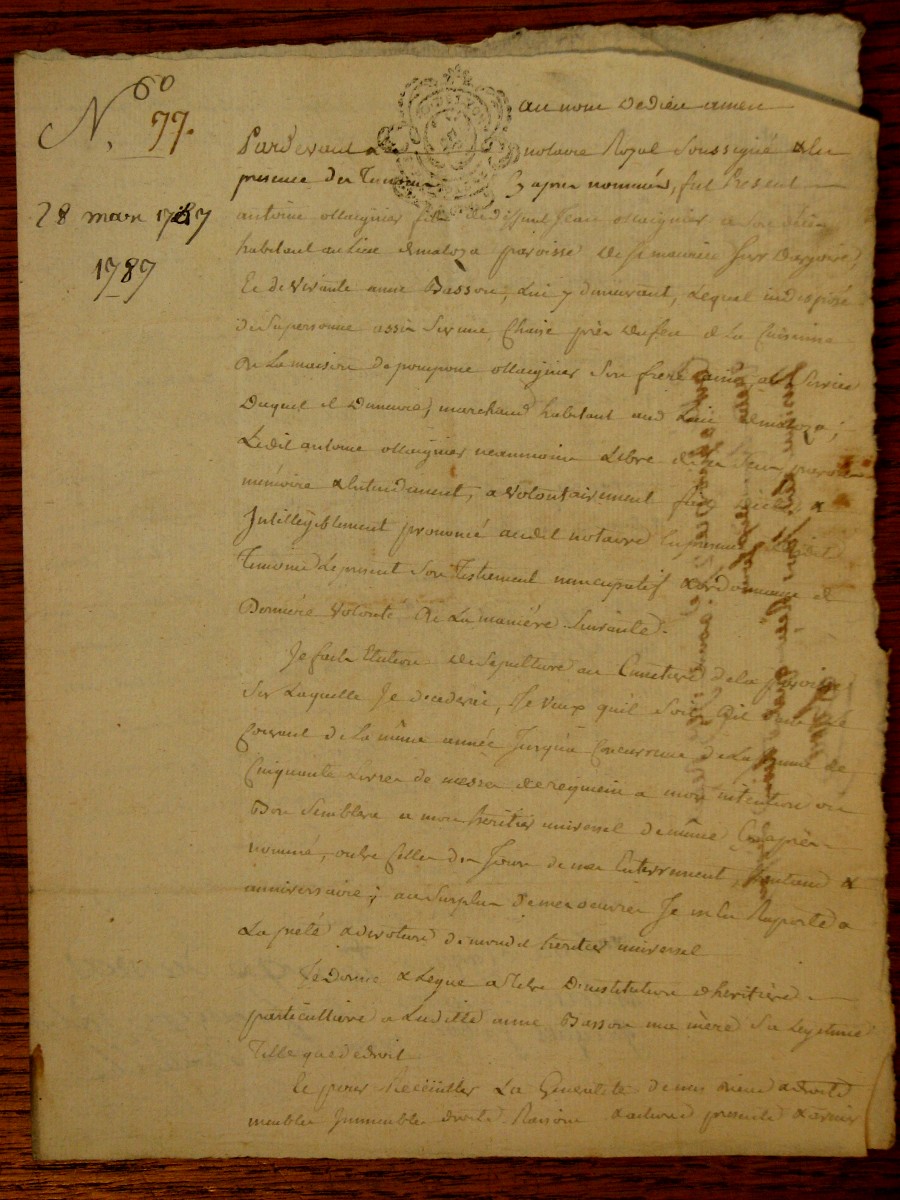 N.º 60
77.
28 mars 1787
1787
au nom de dieu amen
Pardevant le notaire Royal Soussigné & En
presence des Temoins cy apres nommés, fut Present
antoine Maignier fils de deffunt Jean Maignier a son
habitant au Lieu de maloza paroisse de St maurice Sur dargoire,
Et de vivante anne Basson, Lui y demeurant, Lequel indisposé
de Sa personne assis Sur une Chaise près du feu de La Cuisinne
de La maison de pompone Maignier Son frère ainé, au Service
Duquel il Demeure, marchand habitant aud. Lieu de maloza;
Ledit antoine Maignier neanmoins Libre de Ses Sens,
mémoire & Entendement, a volontairement fait &
Intelligiblement prononcé audit notaire En presence desdits
Temoins Le present Son Testament nuncupatif & ordonnance de
Derniere volonté De La maniére Suivante.
Je fait Election de Sepulture au Cimetiere de la paroisse
Sur Laquelle Je decederai, Je veux qu'il Soit dit dans
Courant de La même année Jusqu'a Concurrence de La Somme de
Cinquante Livres de messes de requiem a mon intention ou
Bon Semblera a mon heritier universel de même Cy après
nommé, outre Celles du Jour de mes Enterrement, quantaine &
anniversaire; au Surplus de mes oeuvres Je m'En Raporte a
La pieté & devotion de mondit heritier universel
Je Donne & Legue a Titre D'institution d'heritiére
particulliere a Laditte anne Basson ma mère Sa Legitime
Telle que de droit.
Et pour Recüeiller La Generalité de mes biens & droits
meubles Immeubles droits Raisons & actions presents & avenir